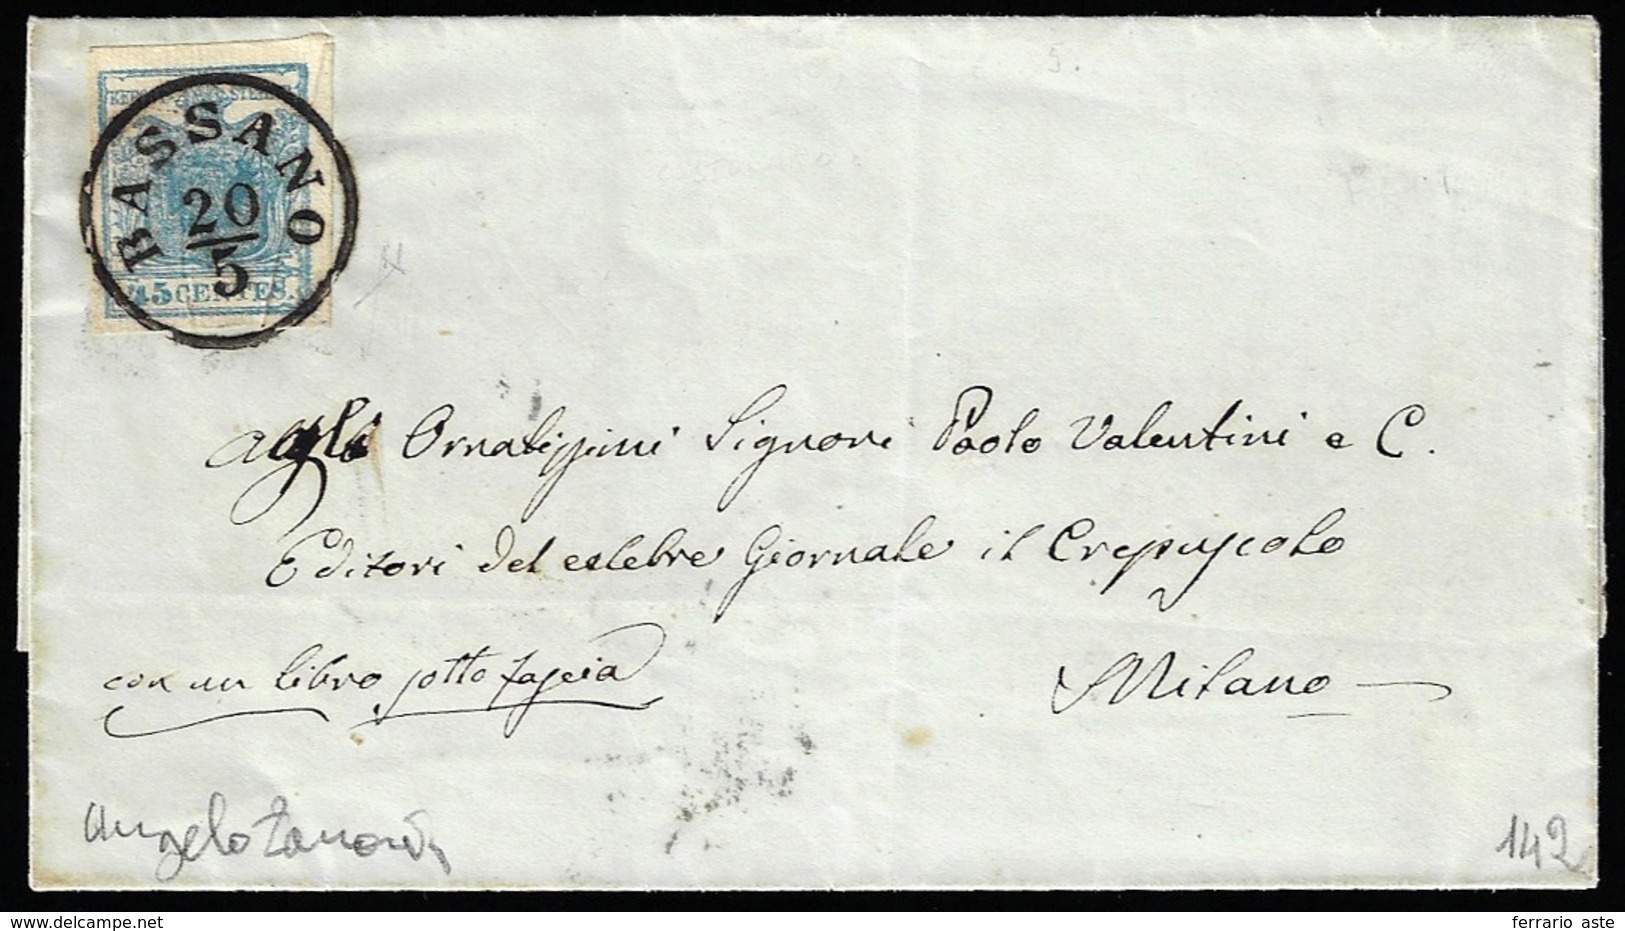 KE STE
BASSANO
20
5
45 CENTES.
5.
agli Ornatissimi Signori Paolo Valentini e C.
Editori del celebre Giornale il Crepuscolo
con un libro sotto fascia
Milano
Angelo Zanon
142
ferrario aste